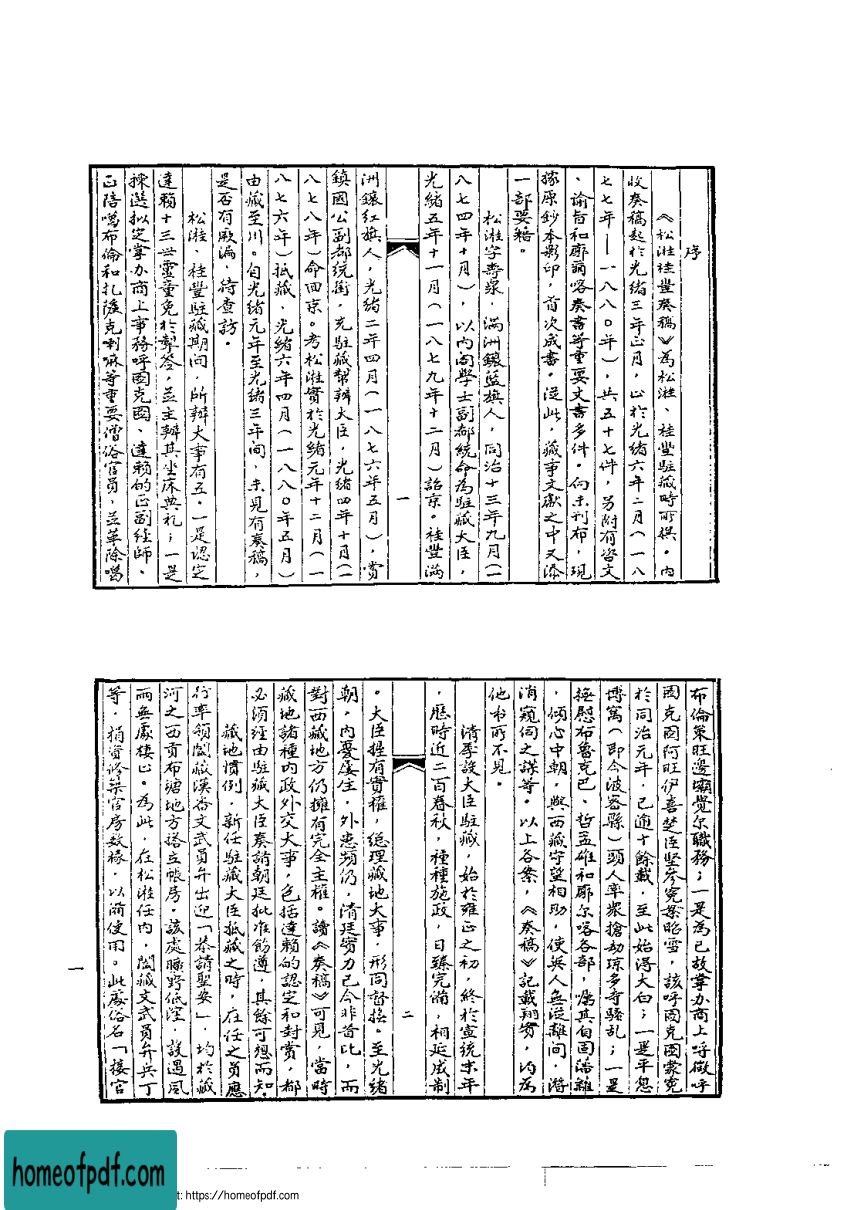 序
《松溎桂豐奏稿》為松溎、桂豐駐藏時所撰。內
收奏稿起於光緒三年正月，止於光緒六年二月（一八
七七年——一八八〇年），共五十七件，另附有咨文
、諭旨和廓爾喀奏書等重要文書多件。向未刊布，現
據原鈔本影印，首次成書。從此，藏事文獻之中又添
一部要籍。
松溎字壽泉，滿洲鑲藍旗人，同治十三年九月（一
八七四年十月），以內閣學士副都統命為駐藏大臣，
光緒五年十一月（一八七九年十二月）詔京。桂豐滿
一
洲鑲紅旗人，光緒二年四月（一八七六年五月），賞
鎮國公副都統銜，充駐藏幫辦大臣，光緒四年十月（一
八七八年）命回京。考松溎實於光緒元年十二月（一
八七六年）抵藏，光緒六年四月（一八八〇年五月）
由藏至川。自光緒元年至光緒三年間，未見有奏稿，
是否有厥漏，待查訪。
松溎、桂豐駐藏期間，所辦大事有五。一是認定
達賴十三世靈童免於掣簽，並主辦其坐床典礼；一是
揀選拟定掌办商上事務呼圖克圖、達賴的正副經師、
正陪噶布倫和扎薩克喇嘛等重要僧俗官員，並革除噶
布倫策旺邊壩覺尔職務；一是為已故掌办商上呼徵呼
圖克圖阿旺伊喜楚臣坚参冤案昭雪，該呼圖克圖蒙冤
於同治元年，已逾十餘載，至此始得大白；一是平息
博窩（即今波密縣）頭人率眾搶劫琼多寺騷乱；一是
撫慰布魯克巴、哲孟雄和廓尔喀各部，囑其自固藩籬
，傾心中朝，與西藏守望相助，使英人無從離間，潛
消窺伺之謀等。以上各案，《奏稿》記載翔實，均為
他书所不見。
清季設大臣駐藏，始於雍正之初，終於宣統末年
，歷時近二百春秋，種種施政，日臻完備，相延成制
二
。大臣握有實權，總理藏地大事，形同督撫。至光緒
朝，內憂屢生，外患頻仍，清廷實力已今非昔比，而
對西藏地方仍擁有完全主權。讀《奏稿》可見，當時
藏地諸種内政外交大事，包括達賴的認定和封賞，都
必須經由駐藏大臣奏請朝廷批准飭遵，其餘可想而知。
藏地慣例，新任駐藏大臣抵藏之時，在任之員應
行率領闔藏漢番文武員弁出迎「恭請聖安」，均於藏
河之西贡布塘地方搭立帳房。該處曠野低溼，設遇風
雨無處棲止。為此，在松溎任内，闔藏文武員弁兵丁
等，捐資修築官房数椽，以備使用。此處俗名「接官
一
homeofpdf.com
t: https://homeofpdf.com